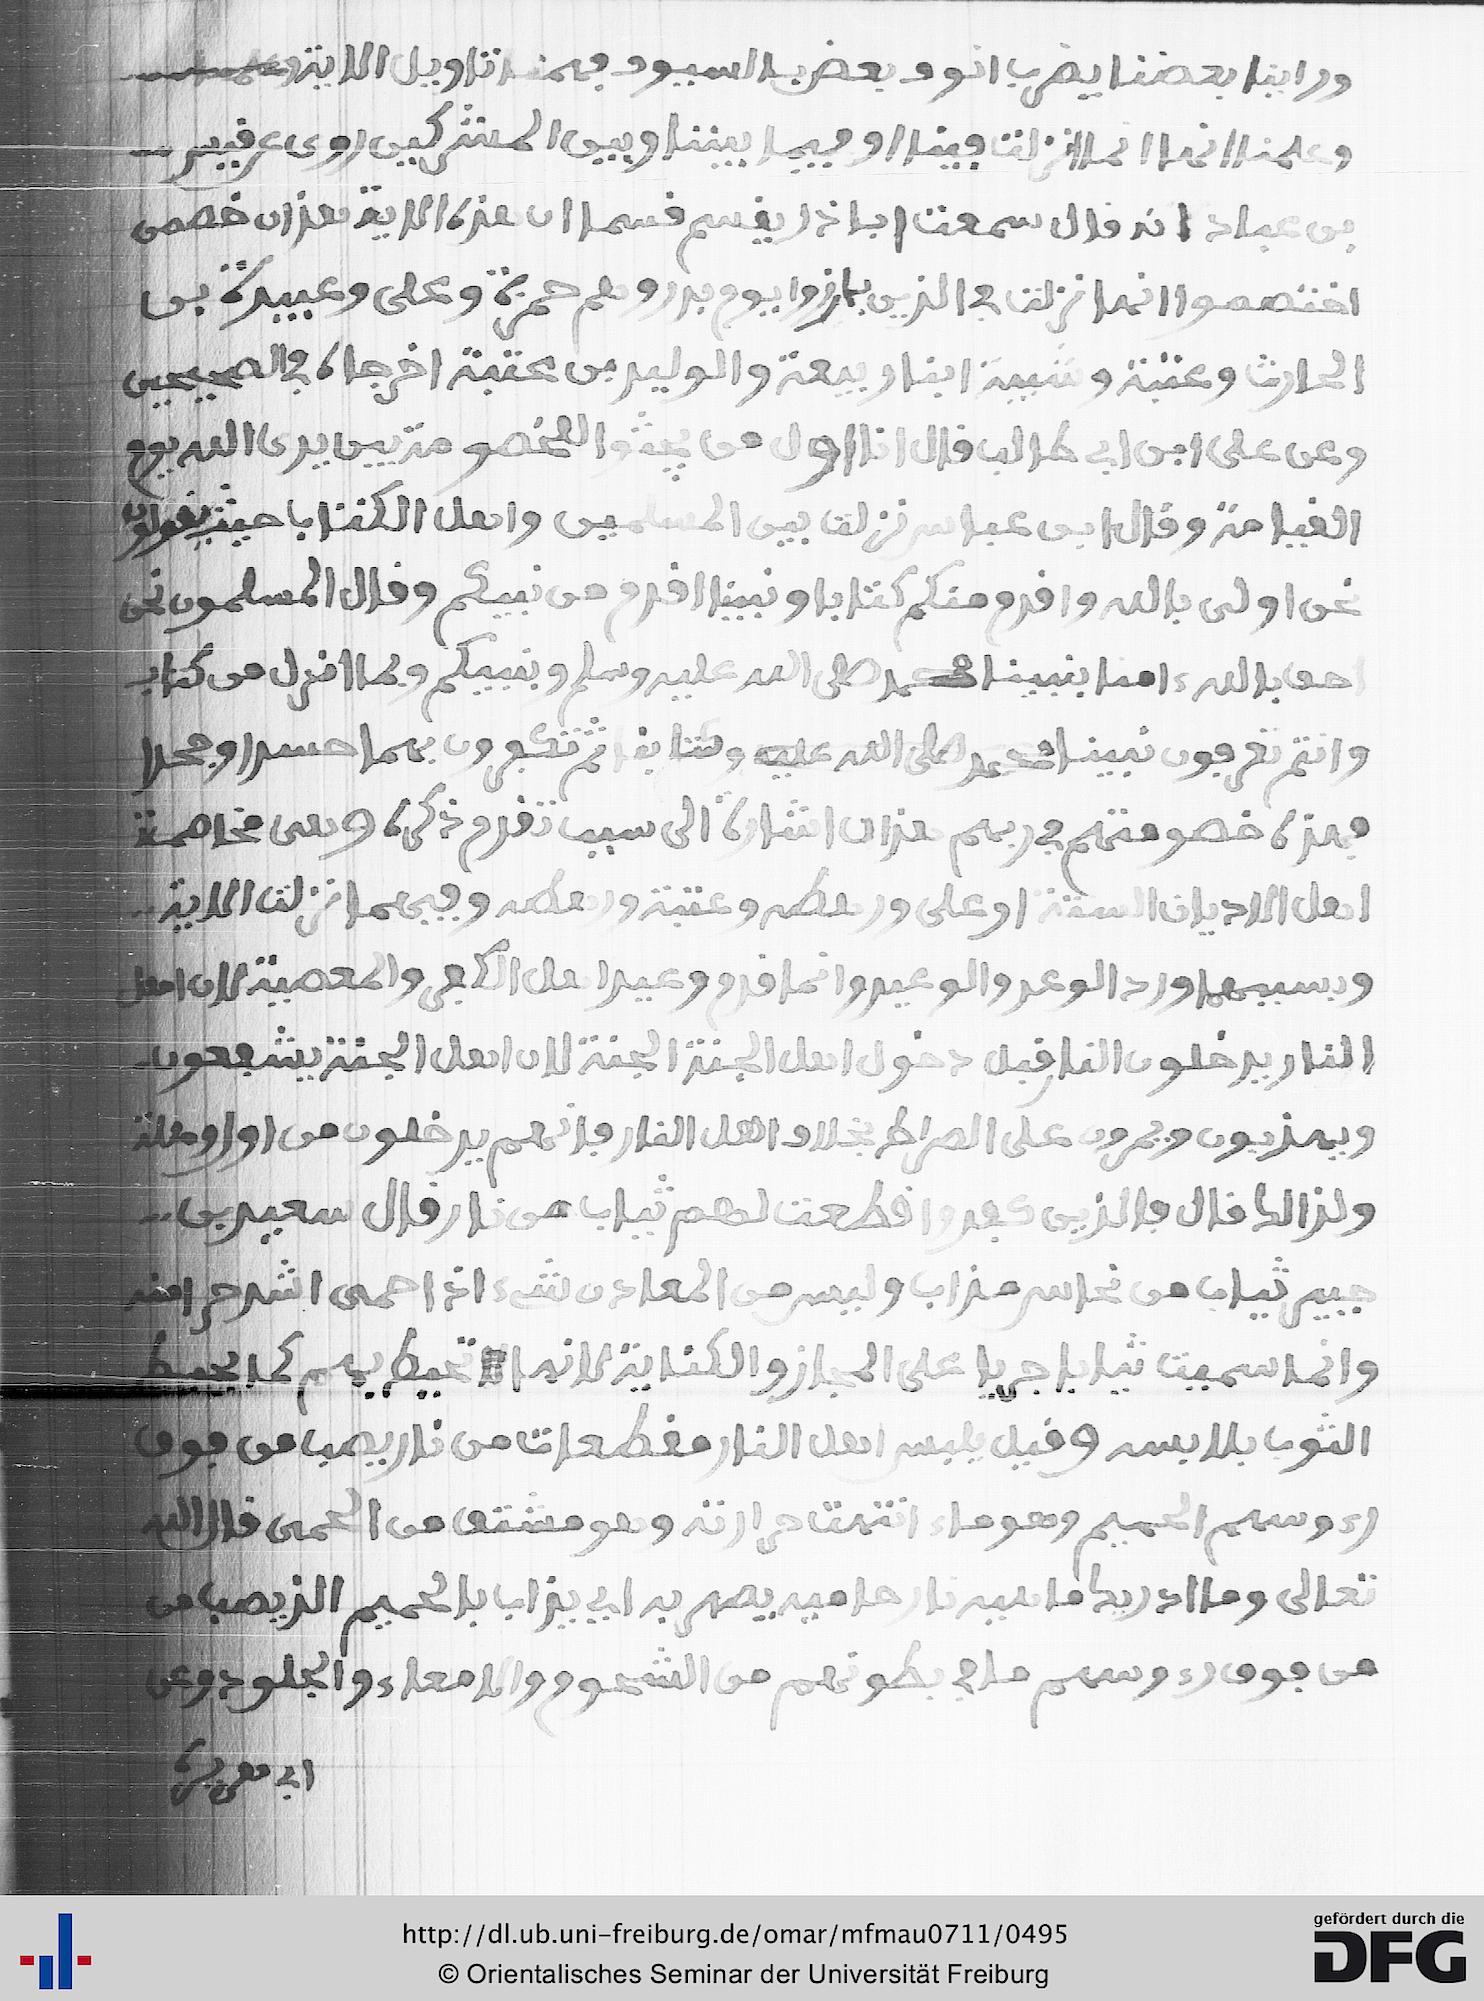 وراينا بعضنا يضرب انوف بعض بالسيوف فهمنا تاويل الاية
وعلمنا انها انما انزلت فينا او فيما بيننا وبين المشركين روى عن قيس
بن عباد انه قال سمعت ابا ذر يقسم قسما ان هذه الاية هذان خصمن
اختصموا انها نزلت في الذين بارزوا يوم بدر وهم حمزة وعلى وعبيدة بن
الحارث وعتبة وشيبة ابنا ربيعة والوليد بن عتبة اخرجاه في الصحيحين
وعن على ابن ابي طالب قال انا اول من يجثوا للخصومة بين يدى الله يوم
القيامة وقال ابن عباس نزلت بين المسلمين واهل الكتاب حيث يقولون
نحن اولى بالله واقدم منكم كتابا ونبينا اقدم من نبيكم وقال المسلمون نحن
احق بالله ءامنا بنبينا محمد صلى الله عليه وسلم وبنبيكم وبما انزل من كتاب
وانتم تعرفون نبينا محمد صلى الله عليه وكتابنا ثم تكفرون بهما حسدا وجحدا
فهذه خصومتهم في ربهم هذان اشارة الى سبب تقدم ذكره وهى مخاصمة
اهل الاديان الستة او على ورهطه وعتبة ورهطه وفيهما نزلت الاية
وبسببهما ورد الوعد والوعيد وانما قدم وعيد اهل الكفر والمعصية لان اهل
النار يدخلون النار قبل دخول اهل الجنة الجنة لان اهل الجنة يشفعون
ويهذبون ويمرون على الصراط بخلاف اهل النار فانهم يدخلون من اول وهلة
ولذالك قال فالذين كفروا قطعت لهم ثياب من نار قال سعيد بن
جبير ثياب من نحاس مذاب وليس من المعادن شيء اذا حمى اشد حرا منه
وانما سميت ثيابا جريا على المجاز والكناية لانها تحيط بهم كما يحيط
الثوب بلابسه وقيل يلبس اهل النار مقطعات من نار يصب من فوق
رءوسهم الحميم وهو ماء انتهت حرارته وهو مشتق من الحمى قال الله
تعالى وما ادريك ماهيه نار حاميه يصهر به ابي يذاب بالحميم الذي يصب من
من فوق رءوسهم ما في بطونهم من الشحوم والامعاء والجلود وعن
ابي هريرة
http://dl.ub.uni-freiburg.de/omar/mfmau0711/0495
© Orientalisches Seminar der Universität Freiburg
gefördert durch die
DFG